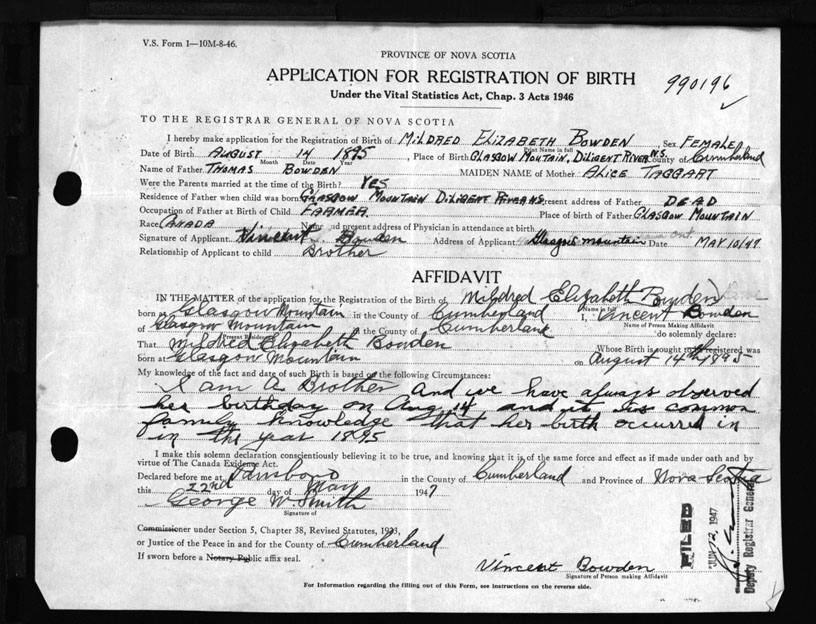 V.S. Form 1—10M-8-46.
PROVINCE OF NOVA SCOTIA
APPLICATION FOR REGISTRATION OF BIRTH
990196
Under the Vital Statistics Act, Chap. 3 Acts 1946
TO THE REGISTRAR GENERAL OF NOVA SCOTIA
I hereby make application for the Registration of Birth of MILDRED ELIZABETH BOWDEN Sex FEMALE
Print Name in full
Date of Birth AUGUST 14 1895, Place of Birth GLASGOW MOUTAIN, DILIGENT RIVER N.S. County of Cumberland
Month Day Year
Name of Father THOMAS BOWDEN MAIDEN NAME of Mother ALICE TAGGART
Were the Parents married at the time of the Birth? YES
Residence of Father when child was born GLASGOW MOUNTAIN DILIGENT RIVER NS present address of Father DEAD
Occupation of Father at Birth of Child FARMER. Place of birth of Father GLASGOW MOUNTAIN
Race CANADA Name and present address of Physician in attendance at birth
Signature of Applicant Vincent Bowden Address of Applicant Glasgow mountain Date MAY 10/47
Relationship of Applicant to child Brother
AFFIDAVIT
IN THE MATTER of the application for the Registration of the Birth of Mildred Elizabeth Bowden
Name in full
born at Glasgow Mountain in the County of Cumberland I, Vincent Bowden
Name of Person Making Affidavit
of Glasgow Mountain in the County of Cumberland do solemnly declare:
Present Residence
That Mildred Elizabeth Bowden Whose Birth is sought to be registered was
born at Glasgow Mountain on August 14th 1895
My knowledge of the fact and date of such Birth is based on the following Circumstances:
I am a Brother and we have always observed
her birthday on Aug 14 and it is common
family knowledge that her birth occurred in
in the year 1895
I make this solemn declaration conscientiously believing it to be true, and knowing that it is of the same force and effect as if made under oath and by
virtue of The Canada Evidence Act.
Declared before me at Parrsboro in the County of Cumberland and Province of Nova Scotia
this 22nd day of May 1947
George W Smith
Signature of
Commissioner under Section 5, Chapter 38, Revised Statutes, 1923,
or Justice of the Peace in and for the County of Cumberland
If sworn before a Notary Public affix seal.
Vincent Bowden
Signature of Person making Affidavit
For Information regarding the filling out of this Form, see instructions on the reverse side.
FILED
1947
Deputy Registrar General